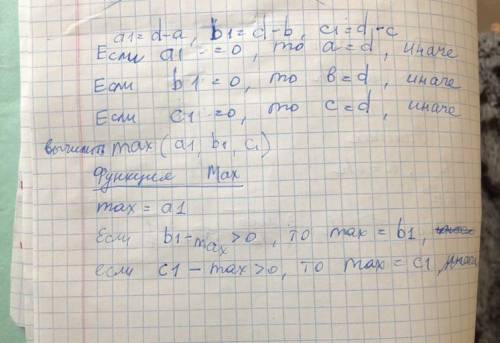 a1=d-a, b1=d-b, c1=d-c
Если a1 ==0, то a=d, иначе
Если b1=0, то в=d, иначе
Если c1=0, то c=d, иначе
вычислить max(a1, b1, c1)
Функция Max
max=a1
Если b1-max>0, то max=b1,
если c1-max>0, то max=c1, иначе